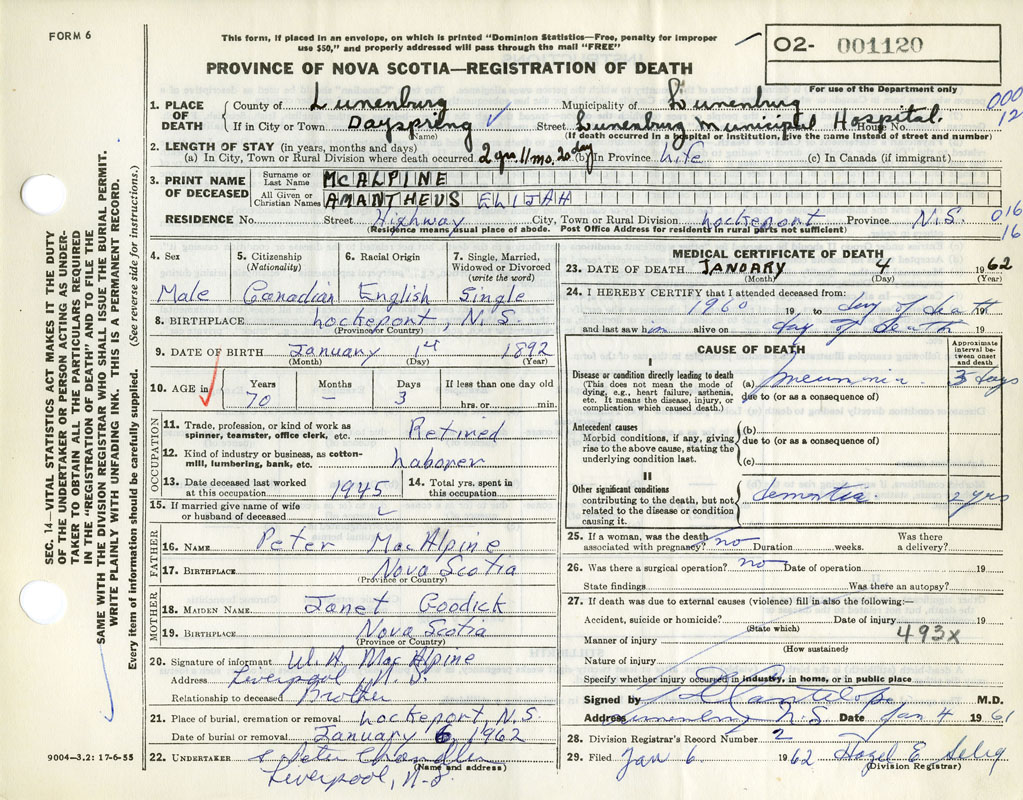 FORM 6
This form, if placed in an envelope, on which is printed "Dominion Statistics—Free, penalty for improper
use $50," and properly addressed will pass through the mail "FREE"
02- 001120
For use of the Department only
PROVINCE OF NOVA SCOTIA—REGISTRATION OF DEATH
SEC. 14—VITAL STATISTICS ACT MAKES IT THE DUTY
OF THE UNDERTAKER OR PERSON ACTING AS UNDER-
TAKER TO OBTAIN ALL THE PARTICULARS REQUIRED
IN THE "REGISTRATION OF DEATH" AND TO FILE THE
SAME WITH THE DIVISION REGISTRAR WHO SHALL ISSUE THE BURIAL PERMIT.
WRITE PLAINLY WITH UNFADING INK. THIS IS A PERMANENT RECORD.
Every item of information should be carefully supplied. (See reverse side for instructions.)
1. PLACE OF DEATH County of Lunenburg Municipality of Lunenburg 000
If in City or Town Dayspring Street Lunenburg Municipal Hospital. House No. 12
(Name) (If death occurred in a hospital or Institution, give the name instead of street and number)
2. LENGTH OF STAY (in years, months and days)
(a) In City, Town or Rural Division where death occurred 2 yrs. 11 mo, 20 day (b) In Province Life (c) In Canada (if immigrant)
3. PRINT NAME OF DECEASED Surname or Last Name MCALPINE
All Given or Christian Names AMANTHEUS ELIJAH
RESIDENCE No. Street Highway City, Town or Rural Division Lockeport Province N.S. 016
(Residence means usual place of abode. Post Office Address for residents in rural parts not sufficient) 16
4. Sex 5. Citizenship (Nationality) 6. Racial Origin 7. Single, Married, Widowed or Divorced (write the word)
Male Canadian English Single
8. BIRTHPLACE Lockeport, N.S.
(Province or Country)
9. DATE OF BIRTH January 1st 1892
(Month) (Day) (Year)
10. AGE in Years Months Days If less than one day old
70 — 3 hrs. or min.
OCCUPATION
11. Trade, profession, or kind of work as spinner, teamster, office clerk, etc. Retired
12. Kind of industry or business, as cotton-mill, lumbering, bank, etc. Laborer
13. Date deceased last worked at this occupation 1945 14. Total yrs. spent in this occupation
15. If married give name of wife or husband of deceased
FATHER
16. NAME Peter MacAlpine
17. BIRTHPLACE Nova Scotia
(Province or Country)
MOTHER
18. MAIDEN NAME Janet Goodick
19. BIRTHPLACE Nova Scotia
(Province or Country)
20. Signature of informant W. A. MacAlpine
Address Liverpool N.S.
Relationship to deceased Brother
21. Place of burial, cremation or removal Lockeport, N.S.
Date of burial or removal January 6, 1962
22. UNDERTAKER Peter Chandler
(Name and address)
Liverpool, N.S.
9004—3.2: 17-6-55
MEDICAL CERTIFICATE OF DEATH
23. DATE OF DEATH JANUARY 4 1962
(Month) (Day) (Year)
24. I HEREBY CERTIFY that I attended deceased from:
1960 19 to day of death
and last saw him alive on day of death 19
CAUSE OF DEATH
Approximate interval between onset and death
I
Disease or condition directly leading to death
(This does not mean the mode of dying, e.g., heart failure, asthenia, etc. It means the disease, injury, or complication which caused death.)
(a) pneumonia. 3 days
due to (or as a consequence of)
Antecedent causes
Morbid conditions, if any, giving rise to the above cause, stating the underlying condition last.
(b)
due to (or as a consequence of)
(c)
II
Other significant conditions
contributing to the death, but not related to the disease or condition causing it.
dementia. 2 yrs
25. If a woman, was the death associated with pregnancy? no Duration weeks. Was there a delivery?
26. Was there a surgical operation? no Date of operation 19
State findings Was there an autopsy?
27. If death was due to external causes (violence) fill in also the following:—
Accident, suicide or homicide? Date of injury 19
(State which)
493X
Manner of injury
(How sustained)
Nature of injury
Specify whether injury occurred in industry, in home, or in public place
Signed by M.D.
Address Lunenburg N.S Date Jan 4 1961
28. Division Registrar's Record Number 2
29. Filed Jan 6 1962 Hazel E. Selig
(Division Registrar)